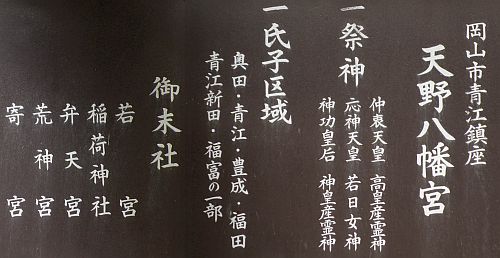 岡山市青江鎮座
天野八幡宮
一祭神
仲哀天皇 高皇産霊神
応神天皇 若日女神
神功皇后 神皇産霊神
一氏子区域
奥田・青江・豊成・福田
青江新田・福富の一部
御末社
若宮
稲荷神社
弁天宮
荒神宮
寄宮